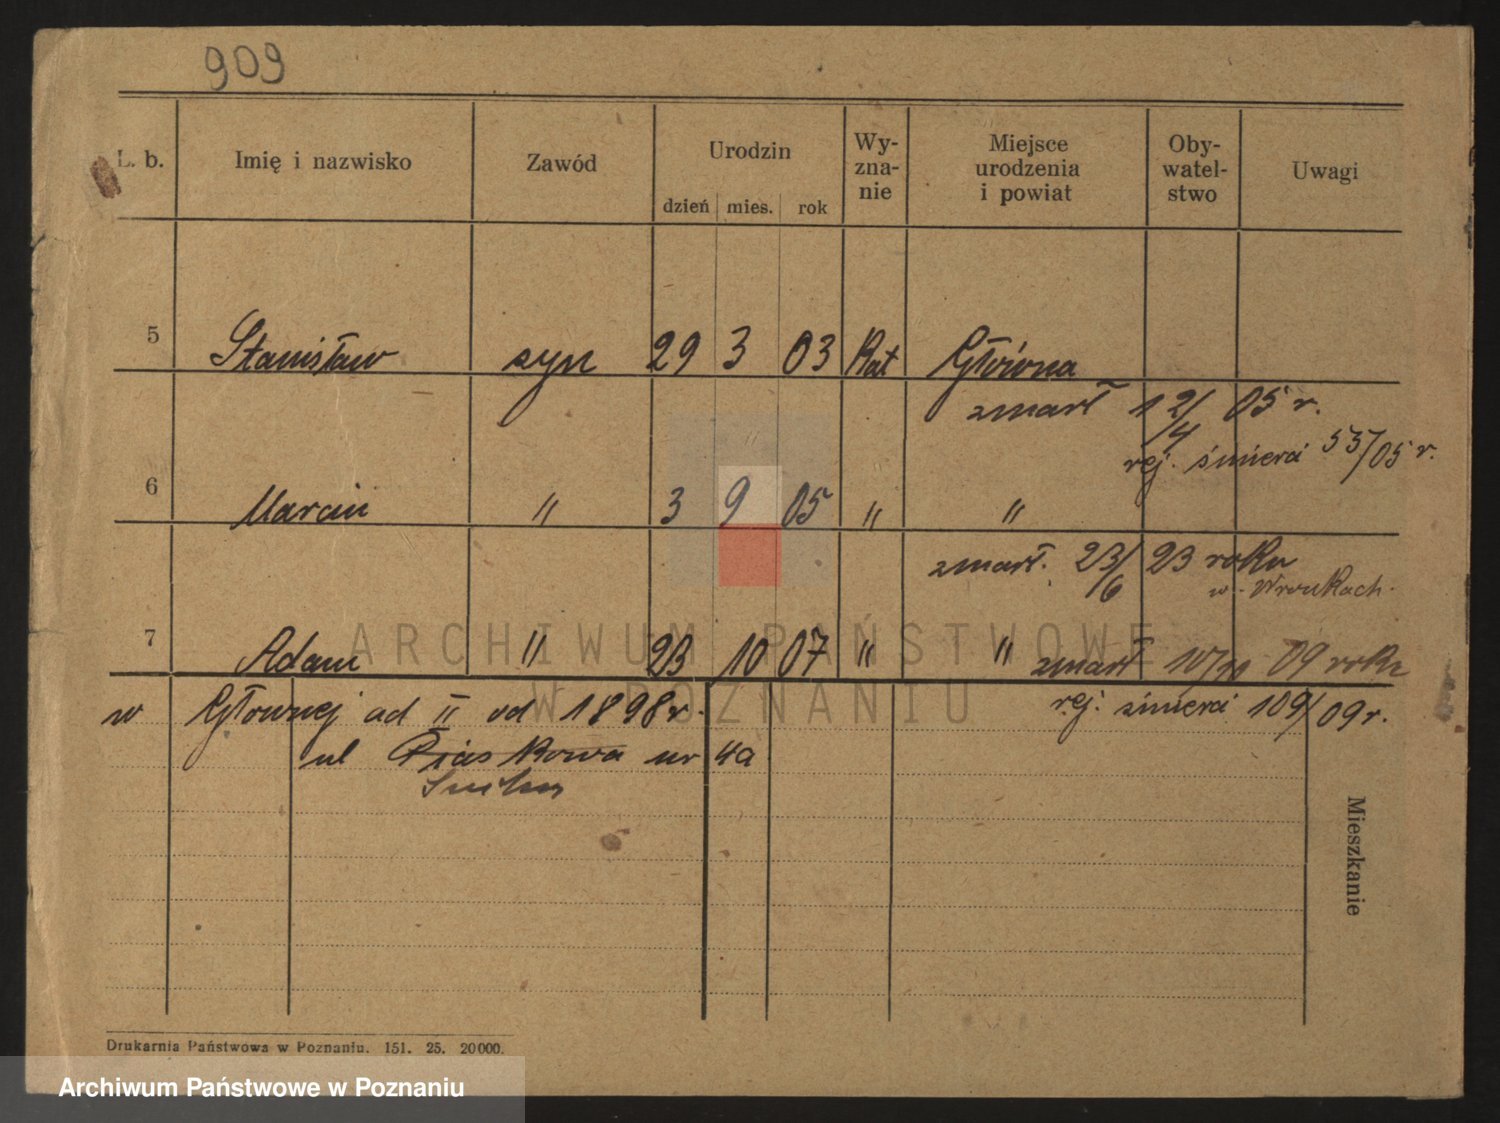 909
L. b. Imię i nazwisko Zawód Urodzin dzień mies. rok Wy-zna-nie Miejsce urodzenia i powiat Oby-watel-stwo Uwagi
5 Stanisław syn 29 3 03 Kat Główna
zmarł 12/4 05 r.
rej. śmierci 53/05 r.
6 Marcin " 3 9 05 " "
zmarł. 23/6 23 roku
w Wronkach.
7 Adam " 23 10 07 " " zmarł 10/11 09 roku
rej. śmierci 109/09 r.
w Głównej ad II od 1898 r.
ul Piaskowa nr 4a
Mieszkanie
Drukarnia Państwowa w Poznaniu. 151. 25. 20000.
ARCHIWUM PAŃSTWOWE
W POZNANIU
Archiwum Państwowe w Poznaniu